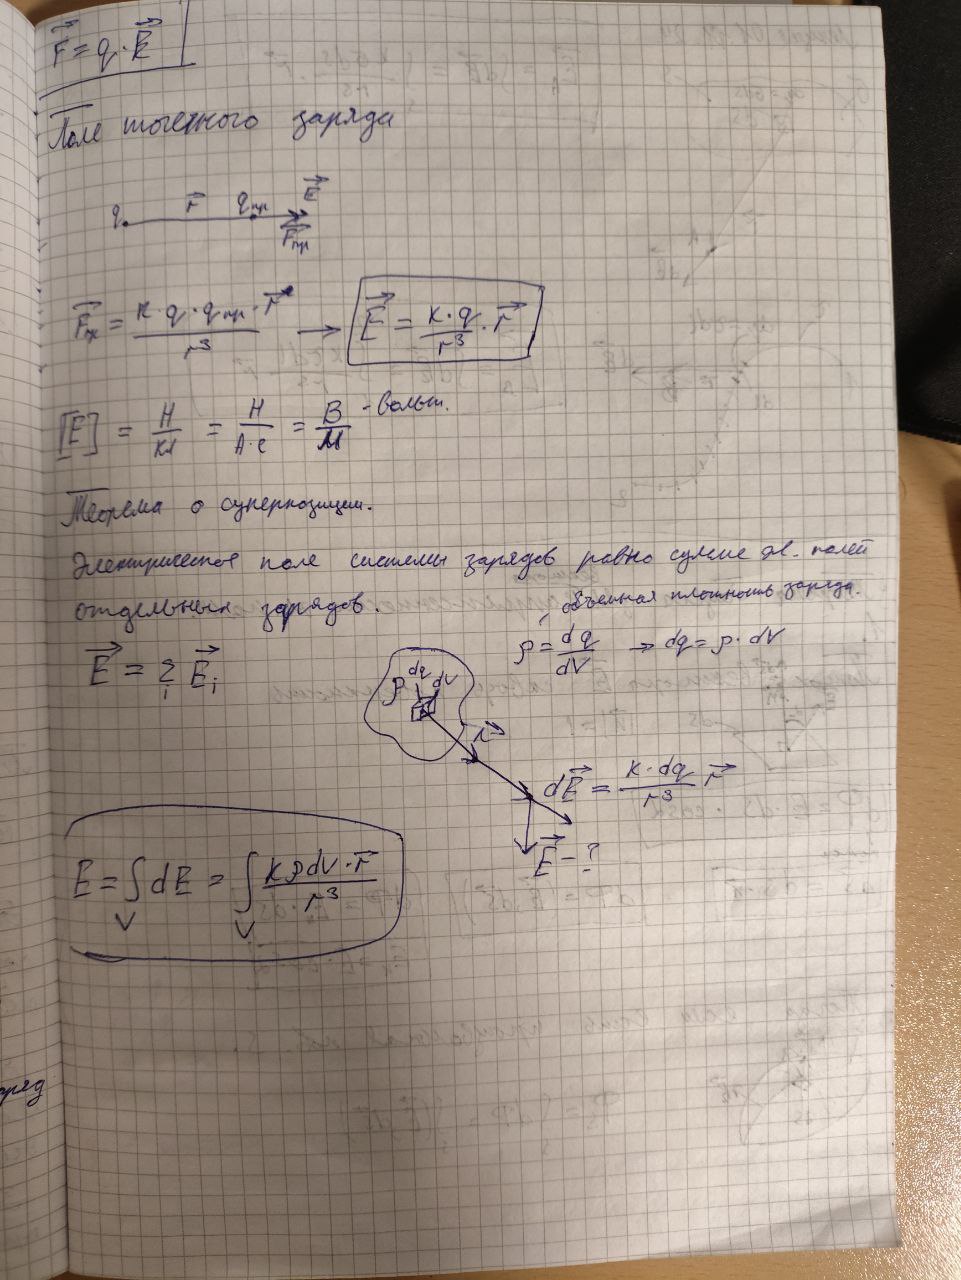 F⃗ = q · E⃗
Поле точечного заряда
q r⃗ qпр E⃗
F⃗пр
F⃗пр = k · q · qпр · r⃗ / r³ → E⃗ = k · q / r³ · r⃗
[E] = Н/Кл = Н/А·с = В/м - вольт.
Теорема о суперпозиции.
Электрическое поле системы зарядов равно сумме эл. полей
отдельных зарядов.
объемная плотность заряда.
ρ = dq/dV → dq = ρ · dV
E⃗ = Σi E⃗i
ρ dq dV
r⃗
dE⃗ = k · dq / r³ r⃗
E⃗ - ?
E = ∫V dE = ∫V kρdV · r⃗ / r³
ряд